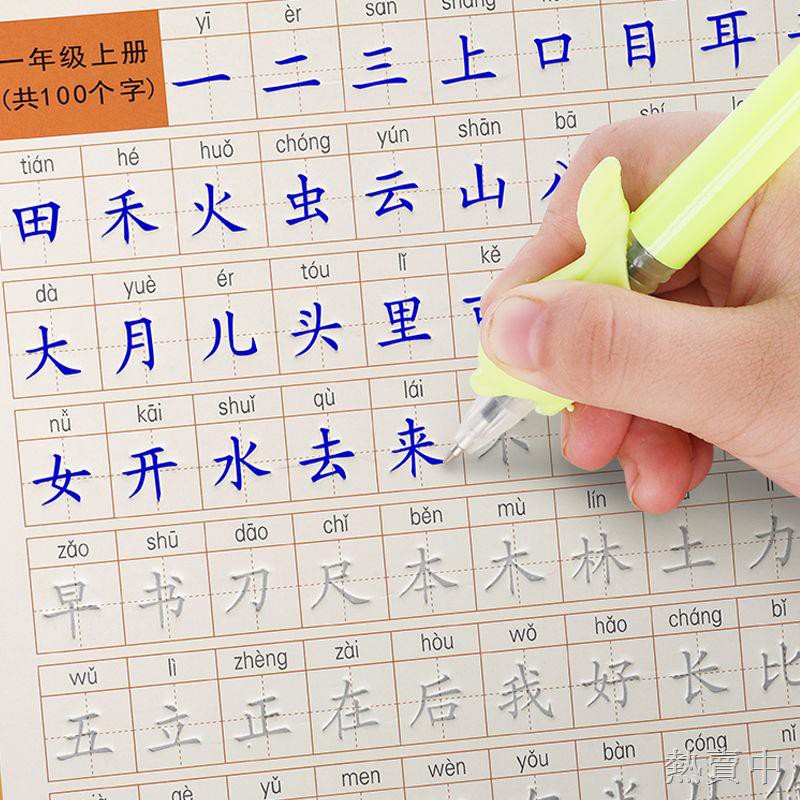 yī èr sān shàng
一年级上册 一 二 三 上 口 目 耳
(共100个字)
tián hé huǒ chóng yún shān bā
田 禾 火 虫 云 山 八
dà yuè ér tóu lǐ kě
大 月 儿 头 里 可
nǚ kāi shuǐ qù lái
女 开 水 去 来
zǎo shū dāo chǐ běn mù lín
早 书 刀 尺 本 木 林 土 力
wǔ lì zhèng zài hòu wǒ hǎo cháng bǐ
五 立 正 在 后 我 好 长 比
gè yǔ men wèn yǒu bàn cóng nǐ
熱賣中